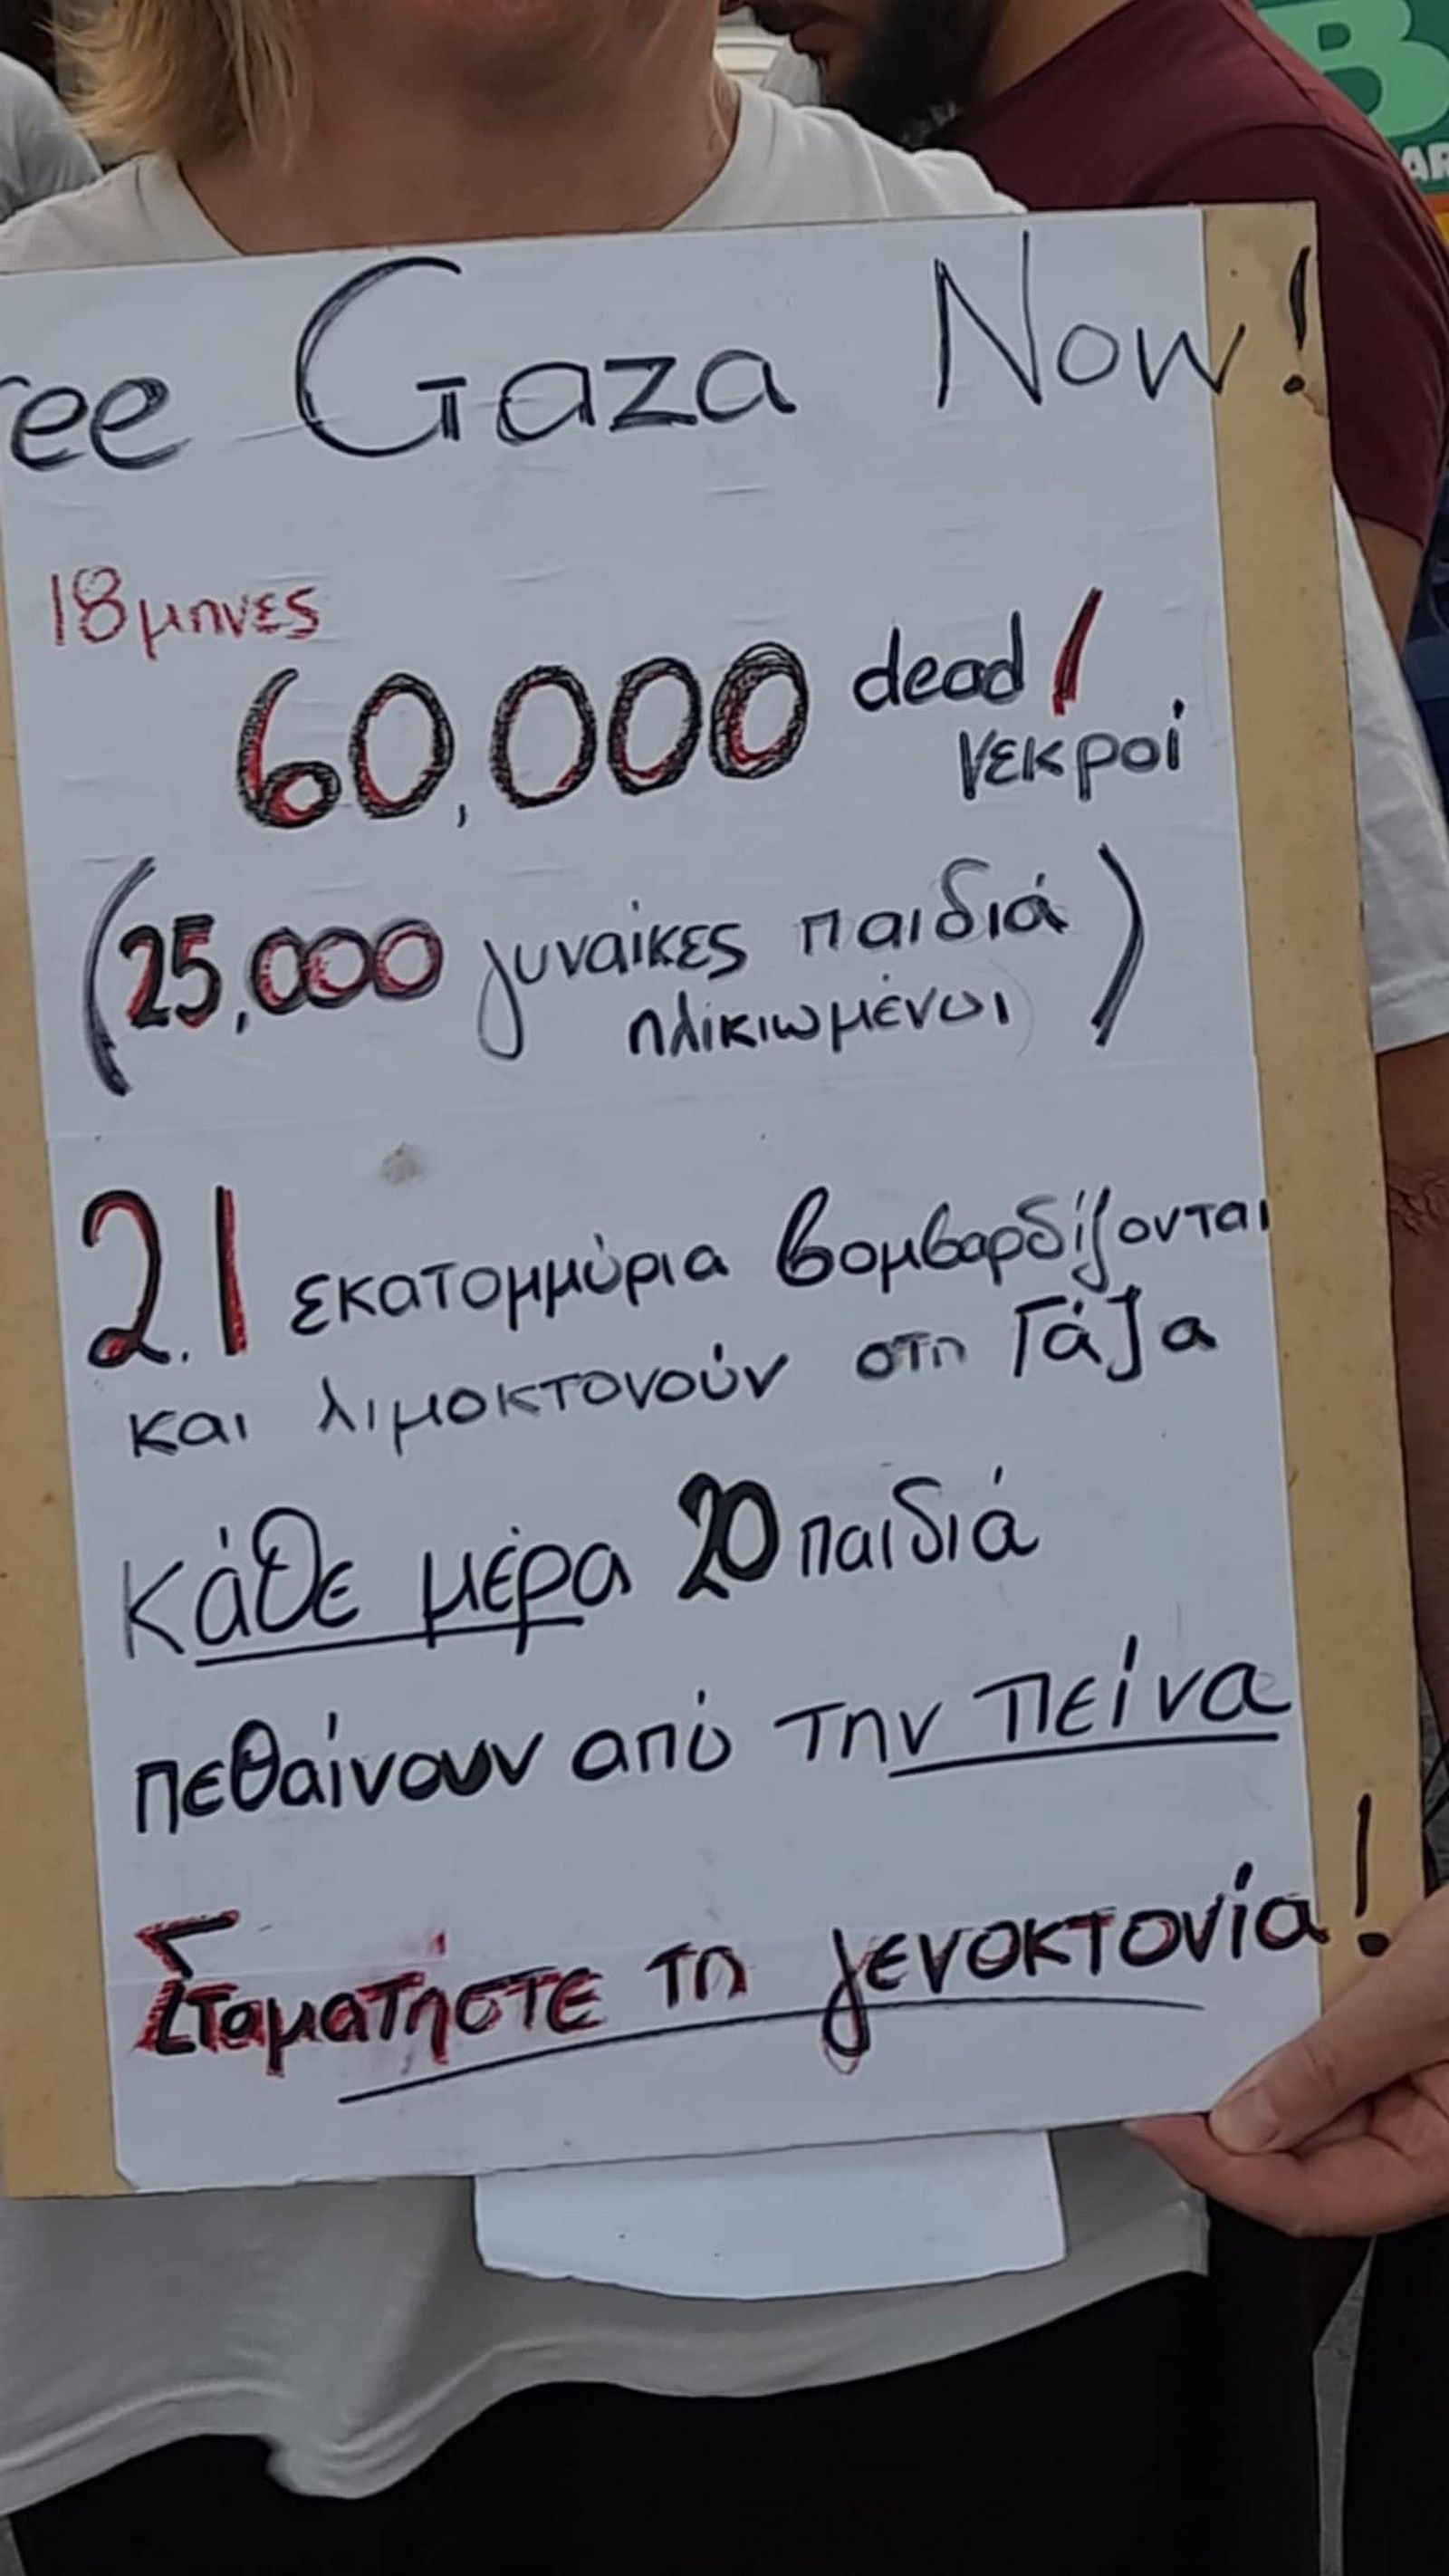 ree Gaza Now!
18 μηνες
60,000 dead /
νεκροί
(25,000 γυναίκες παιδιά
ηλικιωμένοι)
2.1 εκατομμύρια βομβαρδίζονται
και λιμοκτονούν στη Γάζα
Κάθε μέρα 20 παιδιά
πεθαίνουν από την πείνα
Σταματήστε τη γενοκτονία!
B
AR